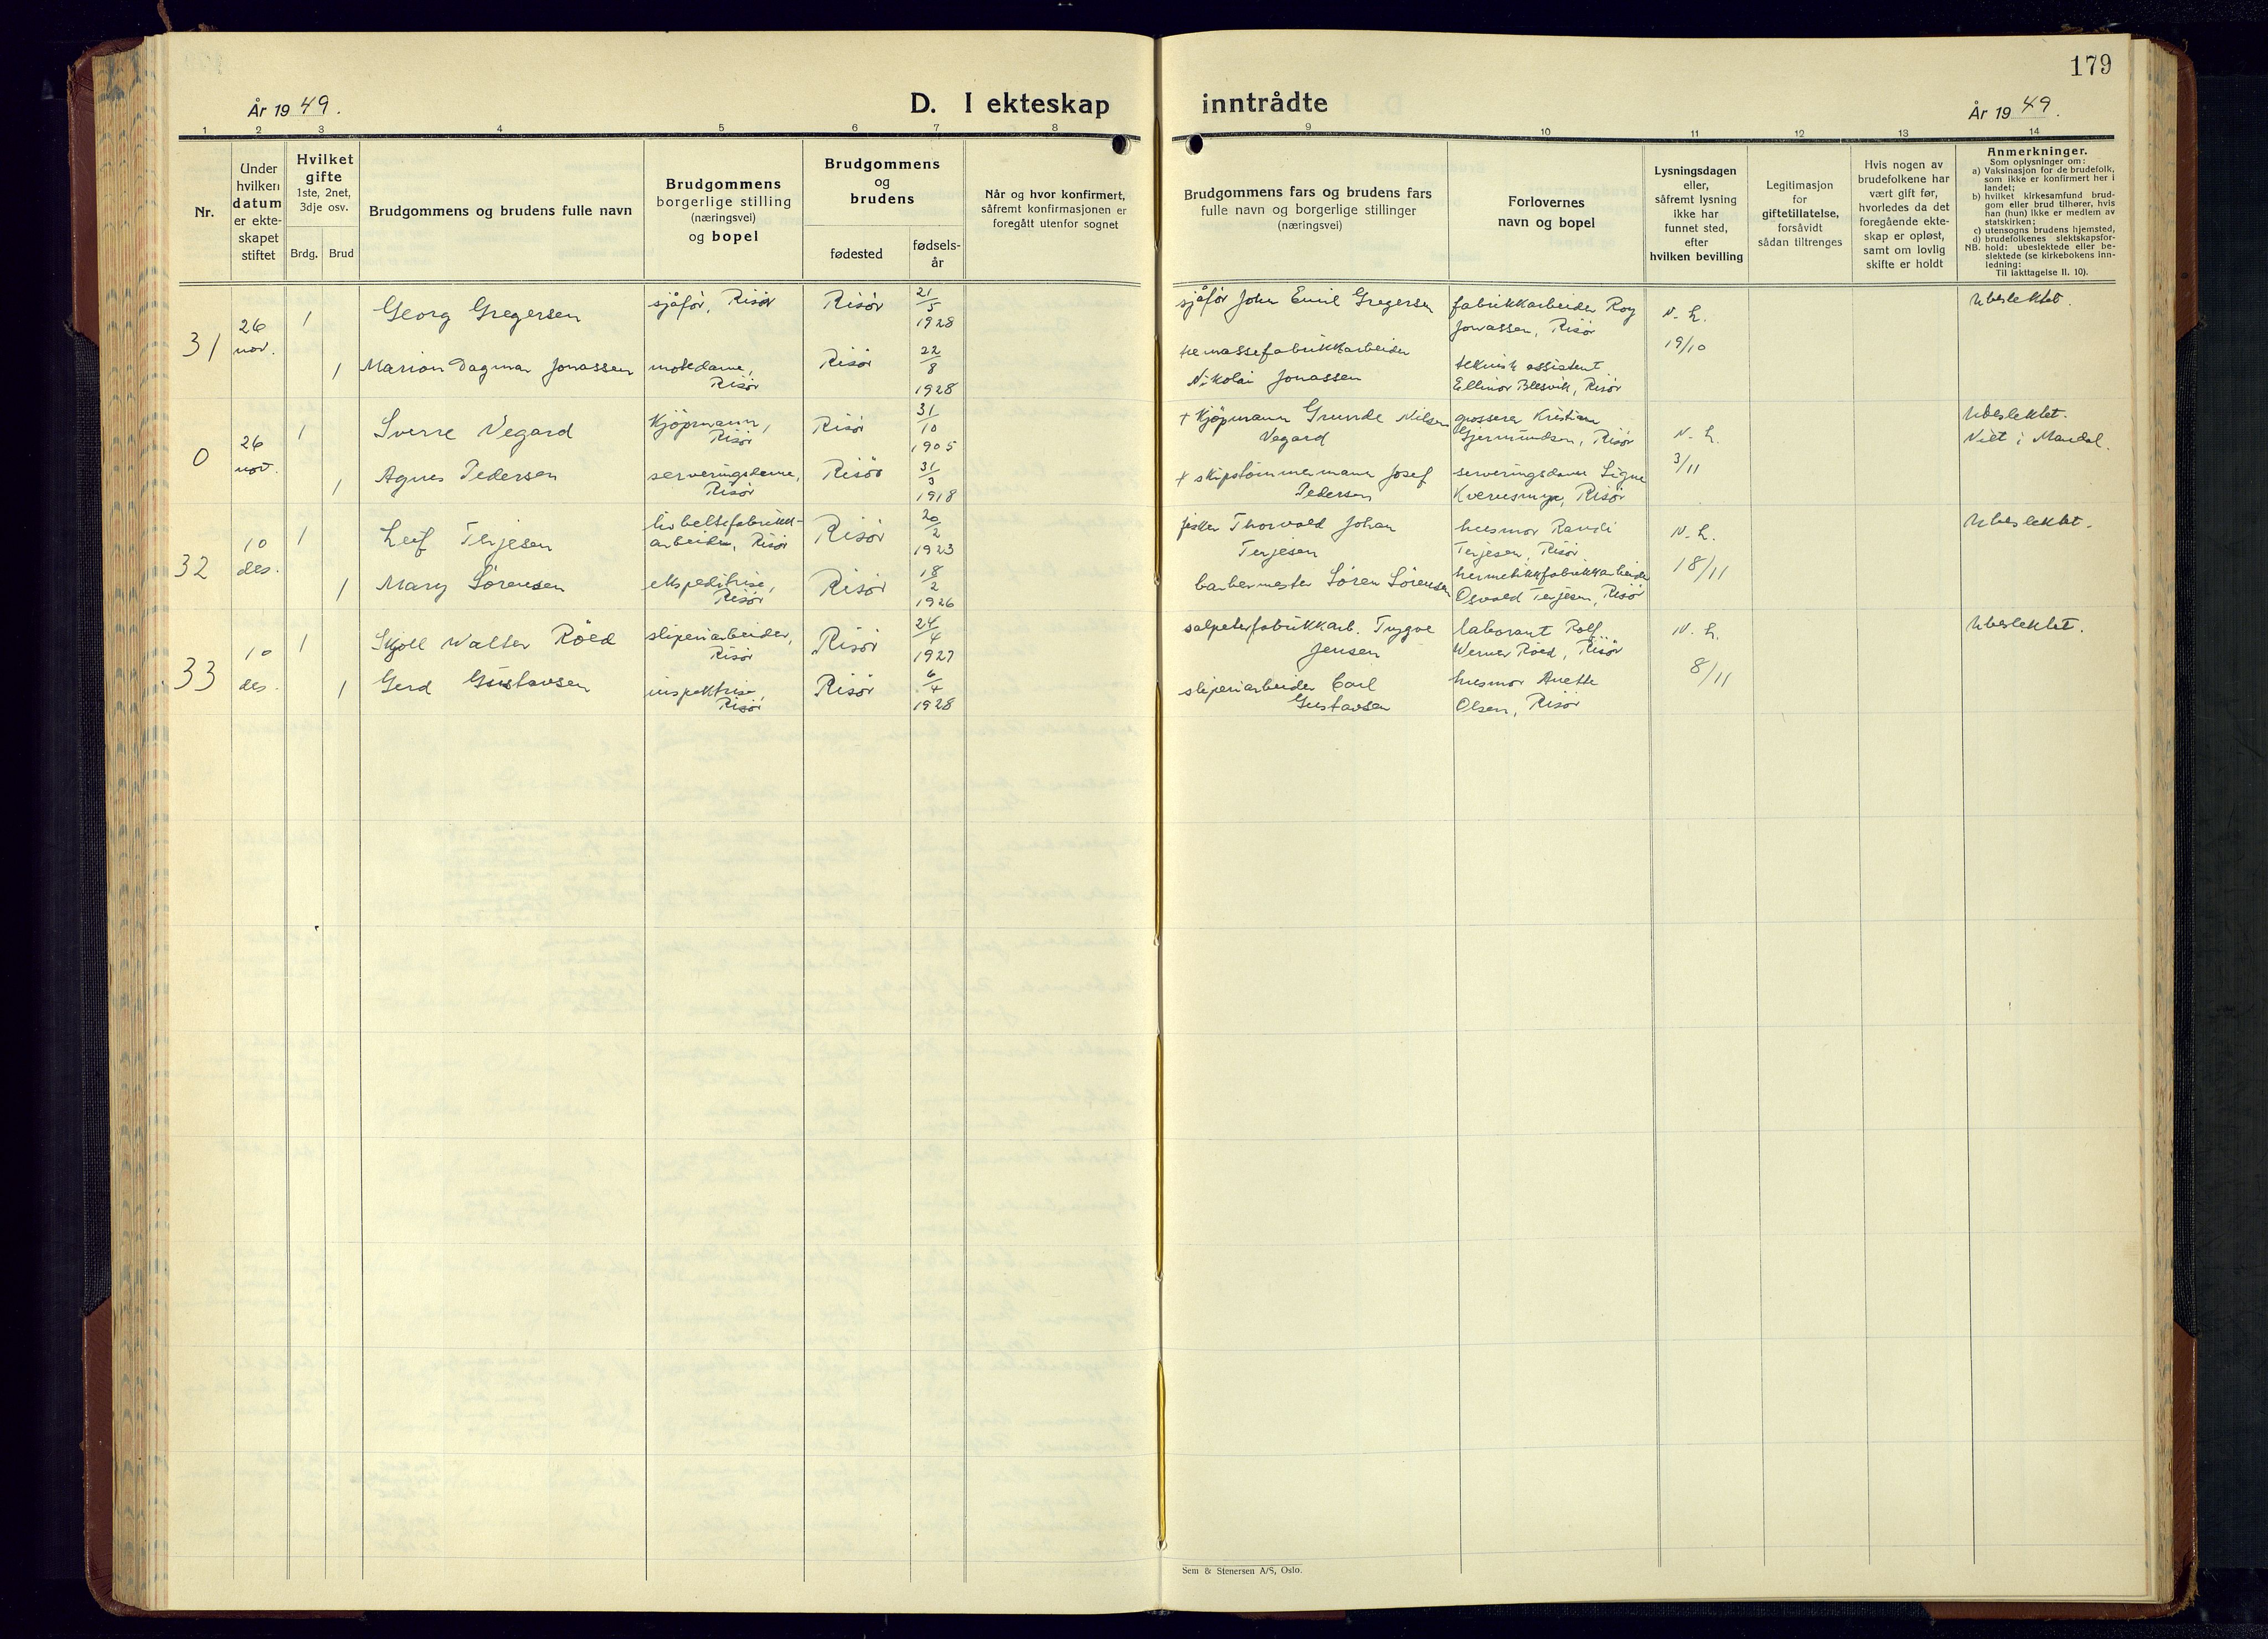 179
År 1949.
D. I ekteskap
inntrådte
År 1949.
1 2 3 4 5 6 7 8 9 10 11 12 13 14
Nr.
Under
hvilken
datum
er ekte-
skapet
stiftet
Hvilket
gifte
1ste, 2net,
3dje osv.
Brdg. Brud
Brudgommens og brudens fulle navn
Brudgommens
borgerlige stilling
(næringsvei)
og bopel
Brudgommens
og
brudens
fødested
fødsels-
år
Når og hvor konfirmert,
såfremt konfirmasjonen er
foregått utenfor sognet
Brudgommens fars og brudens fars
fulle navn og borgerlige stillinger
(næringsvei)
Forlovernes
navn og bopel
Lysningsdagen
eller,
såfremt lysning
ikke har
funnet sted,
efter
hvilken bevilling
Legitimasjon
for
giftetillatelse,
forsåvidt
sådan tiltrenges
Hvis nogen av
brudefolkene har
vært gift før,
hvorledes da det
foregående ekte-
skap er opløst,
samt om lovlig
skifte er holdt
Anmerkninger.
Som oplysninger om:
a) Vaksinasjon for de brudefolk,
som ikke er konfirmert her i
landet;
b) hvilket kirkesamfund brud-
gom eller brud tilhører, hvis
han (hun) ikke er medlem av
statskirken;
c) utensogns brudens hjemsted,
d) brudefolkenes slektskapsfor-
NB. hold: ubeslektede eller be-
slektede (se kirkebokens inn-
ledning:
Til iakttagelse II. 10).
31
26
nov.
1
Georg Gregersen
sjåfør, Risør
Risör
21/5
1928
sjåför John Emil Gregersen
fabrikkarbeider Roy
Jonassen, Risör
N. L.
19/10
Ubeslektet.
1
Marion Dagmar Jonassen
motedame,
Risör
Risör
22/8
1928
tremassefabrikkarbeider
Nikolai Jonassen
teknisk assistent
Ellinor Blesvik, Risör
0
26
nov.
1
Sverre Vegard
Kjöpmann,
Risör
Risör
31/10
1905
+ Kjöpmann Grunde Nilsen
Vegard
grosserer Kristian
Gjermundsen, Risör
N. L.
3/11
Ubeslektet.
Viet i Mandal.
1
Agnes Pedersen
serveringsdame,
Risör
Risör
31/3
1918
+ skipstömmermann Josef
Pedersen
serveringsdame Signe
Kvernsmyr, Risör
32
10
des.
1
Leif Terjesen
livbeltefabrikk-
arbeider, Risör
Risör
20/2
1923
fisker Thorvald Johan
Terjesen
husmor Randi
Terjesen, Risör
N. L.
18/11
Ubeslektet.
1
Mary Sörensen
ekspeditrise,
Risör
Risör
18/2
1926
barbermester Sören Sörensen
hermetikkfabrikkarbeider
Osvald Terjesen, Risör
33
10
des.
1
Skjoll Walter Röed
sliperiarbeider,
Risör
Risör
24/4
1927
salpeterfabrikkarb. Trygve
Jensen
laborant Rolf
Werner Röed, Risör
N. L.
8/11
Ubeslektet.
1
Gerd Gustavsen
inspektrise,
Risör
Risör
6/4
1928
sliperiarbeider Carl
Gustavsen
husmor Anette
Olsen, Risör
Sem & Stenersen A/S, Oslo.